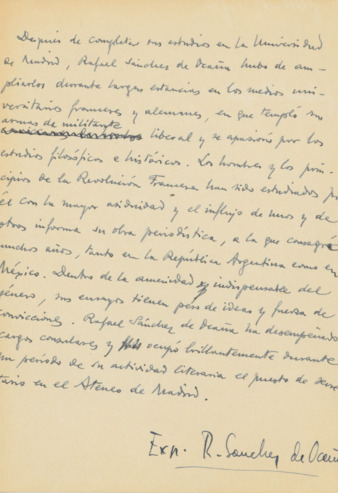 Después de completar sus estudios en la Universidad
de Madrid, Rafael Sánchez de Ocaña hubo de am-
pliarlos durante largas estancias en los medios uni-
versitarios franceses y alemanes, en que templó sus
armas de militante
liberal y se apasionó por los
estudios filosóficos e históricos. Los hombres y los prin-
cipios de la Revolución Francesa han sido estudiados por
él con la mayor asiduidad y el influjo de unos y de
otros informa su obra periodística, a la que consagró
muchos años, tanto en la República Argentina como en
México. Dentro de la amenidad indispensable del
género, sus ensayos tienen peso de ideas y fuerza de
convicciones. Rafael Sánchez de Ocaña ha desempeñado
cargos consulares y ocupó brillantemente durante
un período de su actividad literaria el puesto de Secre-
tario en el Ateneo de Madrid.
Exp. R. Sanchez de Ocaña